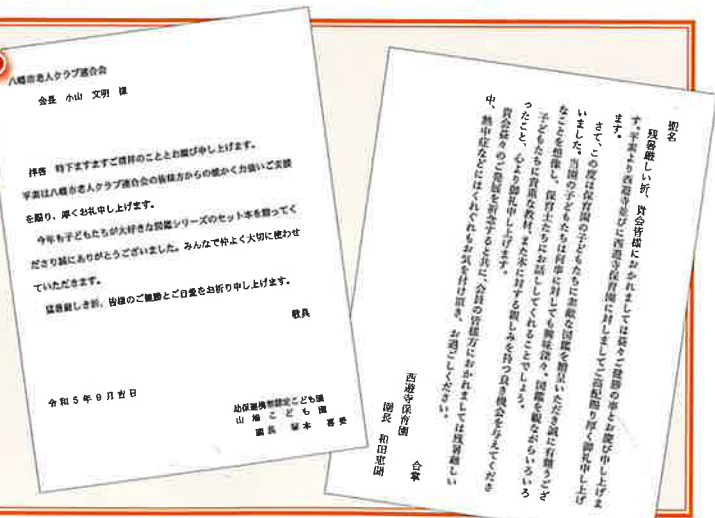 八幡市老人クラブ連合会
会長 小山 文明 様
拝啓 時下ますますご清祥のこととお慶び申し上げます。
平素は八幡市老人クラブ連合会の皆様方からの暖かく力強いご支援
を賜り、厚くお礼申し上げます。
今年も子どもたちが大好きな図鑑シリーズのセット本を贈ってく
ださり誠にありがとうございました。みんなで仲よく大切に使わせ
ていただきます。
猛暑厳しき折、皆様のご健勝とご自愛をお祈り申し上げます。
敬具
令和5年9月吉日
幼保連携型認定こども園
山鳩こども園
園長 本 喜
合名
残暑厳しい折、貴会皆様におかれましては益々ご健勝の事とお慶び申し上げま
す。平素より西遊寺並びに西遊寺保育園に対しましてご高配賜り厚く御礼申し上げ
ます。
さて、この度は保育園の子どもたちに素敵な図鑑を贈呈いただき誠に有難うござ
いました。当園の子どもたちは何事に対しても興味深々、図鑑を観ながらいろいろ
なことを想像し、保育士たちにお話ししてくれることでしょう。
子どもたちに貴重な教材、また本に対する親しみを持つ良き機会を与えてくださ
ったこと、心より御礼申し上げます。
貴会益々のご発展を祈念すると共に、会員の皆様方におかれましては残暑厳しい
中、熱中症などにはくれぐれもお気を付け頂き、お過ごしください。
合掌
西遊寺保育園
園長 和田恵聞